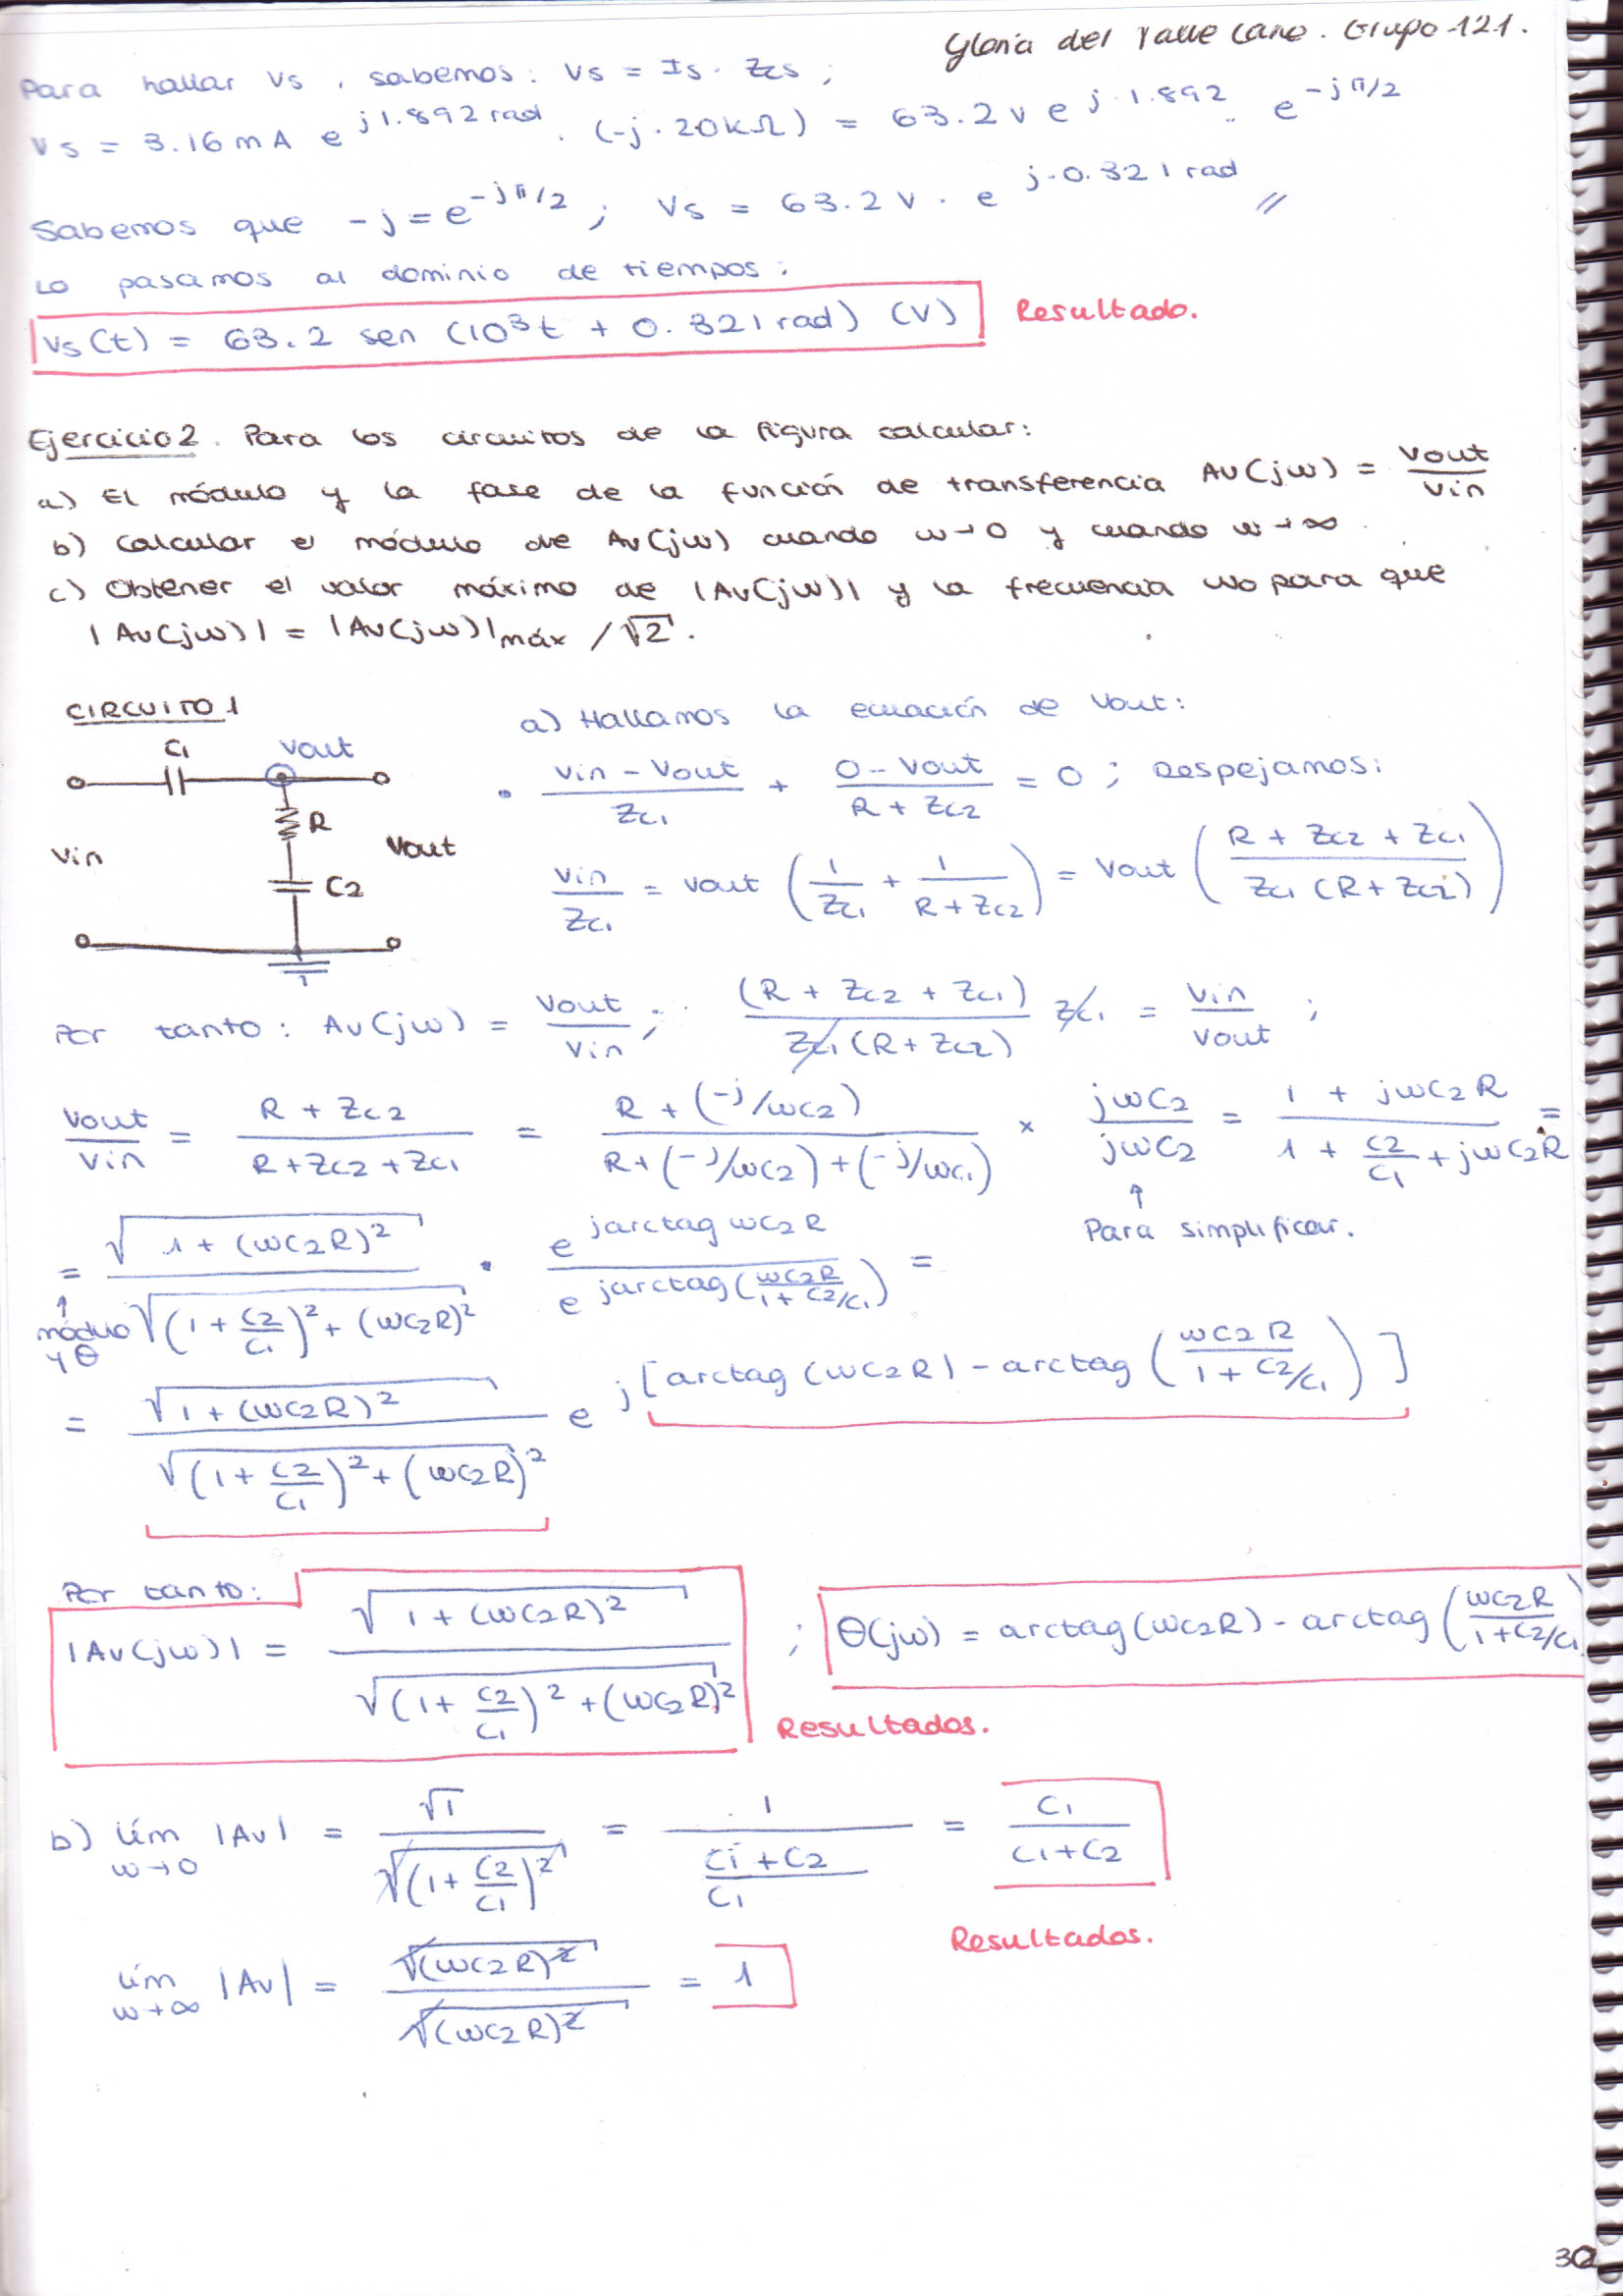 Gloria del Valle Cano. Grupo 121.
Para hallar Vs, sabemos: Vs = Is · Zcs ;
Vs = 3.16 mA e^(j 1.892 rad) · (-j · 20 kΩ) = 63.2 v e^(j 1.892) · e^(-jπ/2)
Sabemos que -j = e^(-jπ/2) ; Vs = 63.2 v · e^(j·0.321 rad) //
Lo pasamos al dominio de tiempos:
Vs(t) = 63.2 sen (10³t + 0.321 rad) (V) Resultado.
Ejercicio 2. Para los circuitos de la figura calcular:
a) El módulo y la fase de la función de transferencia Av(jω) = Vout/Vin
b) Calcular el módulo de Av(jω) cuando ω→0 y cuando ω→∞.
c) Obtener el valor máximo de |Av(jω)| y la frecuencia ωo para que
|Av(jω)| = |Av(jω)|máx / √2.
CIRCUITO 1
C1
Vout
R
Vin
Vout
C2
a) Hallamos la ecuación de Vout:
• (Vin - Vout)/Zc1 + (0 - Vout)/(R + Zc2) = 0 ; Despejamos:
Vin/Zc1 = Vout (1/Zc1 + 1/(R + Zc2)) = Vout ((R + Zc2 + Zc1)/(Zc1 (R + Zc2)))
Por tanto: Av(jω) = Vout/Vin ; (R + Zc2 + Zc1)/(Zc1 (R + Zc2)) Zc1 = Vin/Vout ;
Vout/Vin = (R + Zc2)/(R + Zc2 + Zc1) = (R + (-j/ωC2))/(R + (-j/ωC2) + (-j/ωC1)) × jωC2/jωC2 = (1 + jωC2R)/(1 + C2/C1 + jωC2R) =
↑
Para simplificar.
= √(1 + (ωC2R)²)/√((1 + C2/C1)² + (ωC2R)²) · e^(jarctag ωC2R)/e^(jarctag(ωC2R/(1 + C2/C1))) =
↑
módulo
y θ
= √(1 + (ωC2R)²)/√((1 + C2/C1)² + (ωC2R)²) e^(j[arctag(ωC2R) - arctag(ωC2R/(1 + C2/C1))])
Por tanto:
|Av(jω)| = √(1 + (ωC2R)²)/√((1 + C2/C1)² + (ωC2R)²) ; θ(jω) = arctag(ωC2R) - arctag(ωC2R/(1 + C2/C1)
Resultados.
b) lím ω→0 |Av| = √1/√((1 + C2/C1)²) = 1/((C1 + C2)/C1) = C1/(C1+C2)
Resultados.
lím ω→∞ |Av| = √((ωC2R)²)/√((ωC2R)²) = 1